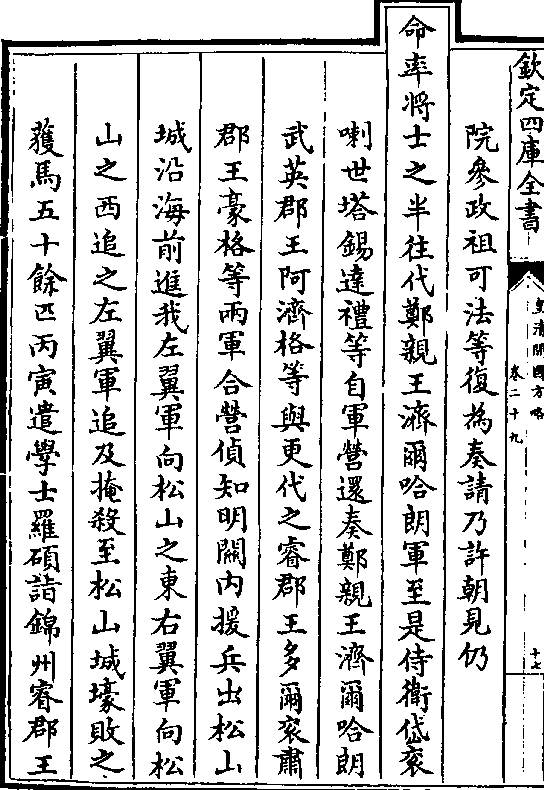 欽定四庫全書
皇清開國方略
卷二十九
十七
院參政祖可法等復為奏請乃許朝見仍
命率將士之半往代鄭親王濟爾哈朗軍至是侍衛岱衮
喇世塔錫達禮等自軍營還奏鄭親王濟爾哈朗
武英郡王阿濟格等與更代之睿郡王多爾衮肅
郡王豪格等兩軍合營偵知明關内援兵出松山
城沿海前進我左翼軍向松山之東右翼軍向松
山之西追之左翼軍追及掩殺至松山城壕敗之
獲馬五十餘匹丙寅遣學士羅碩詣錦州睿郡王